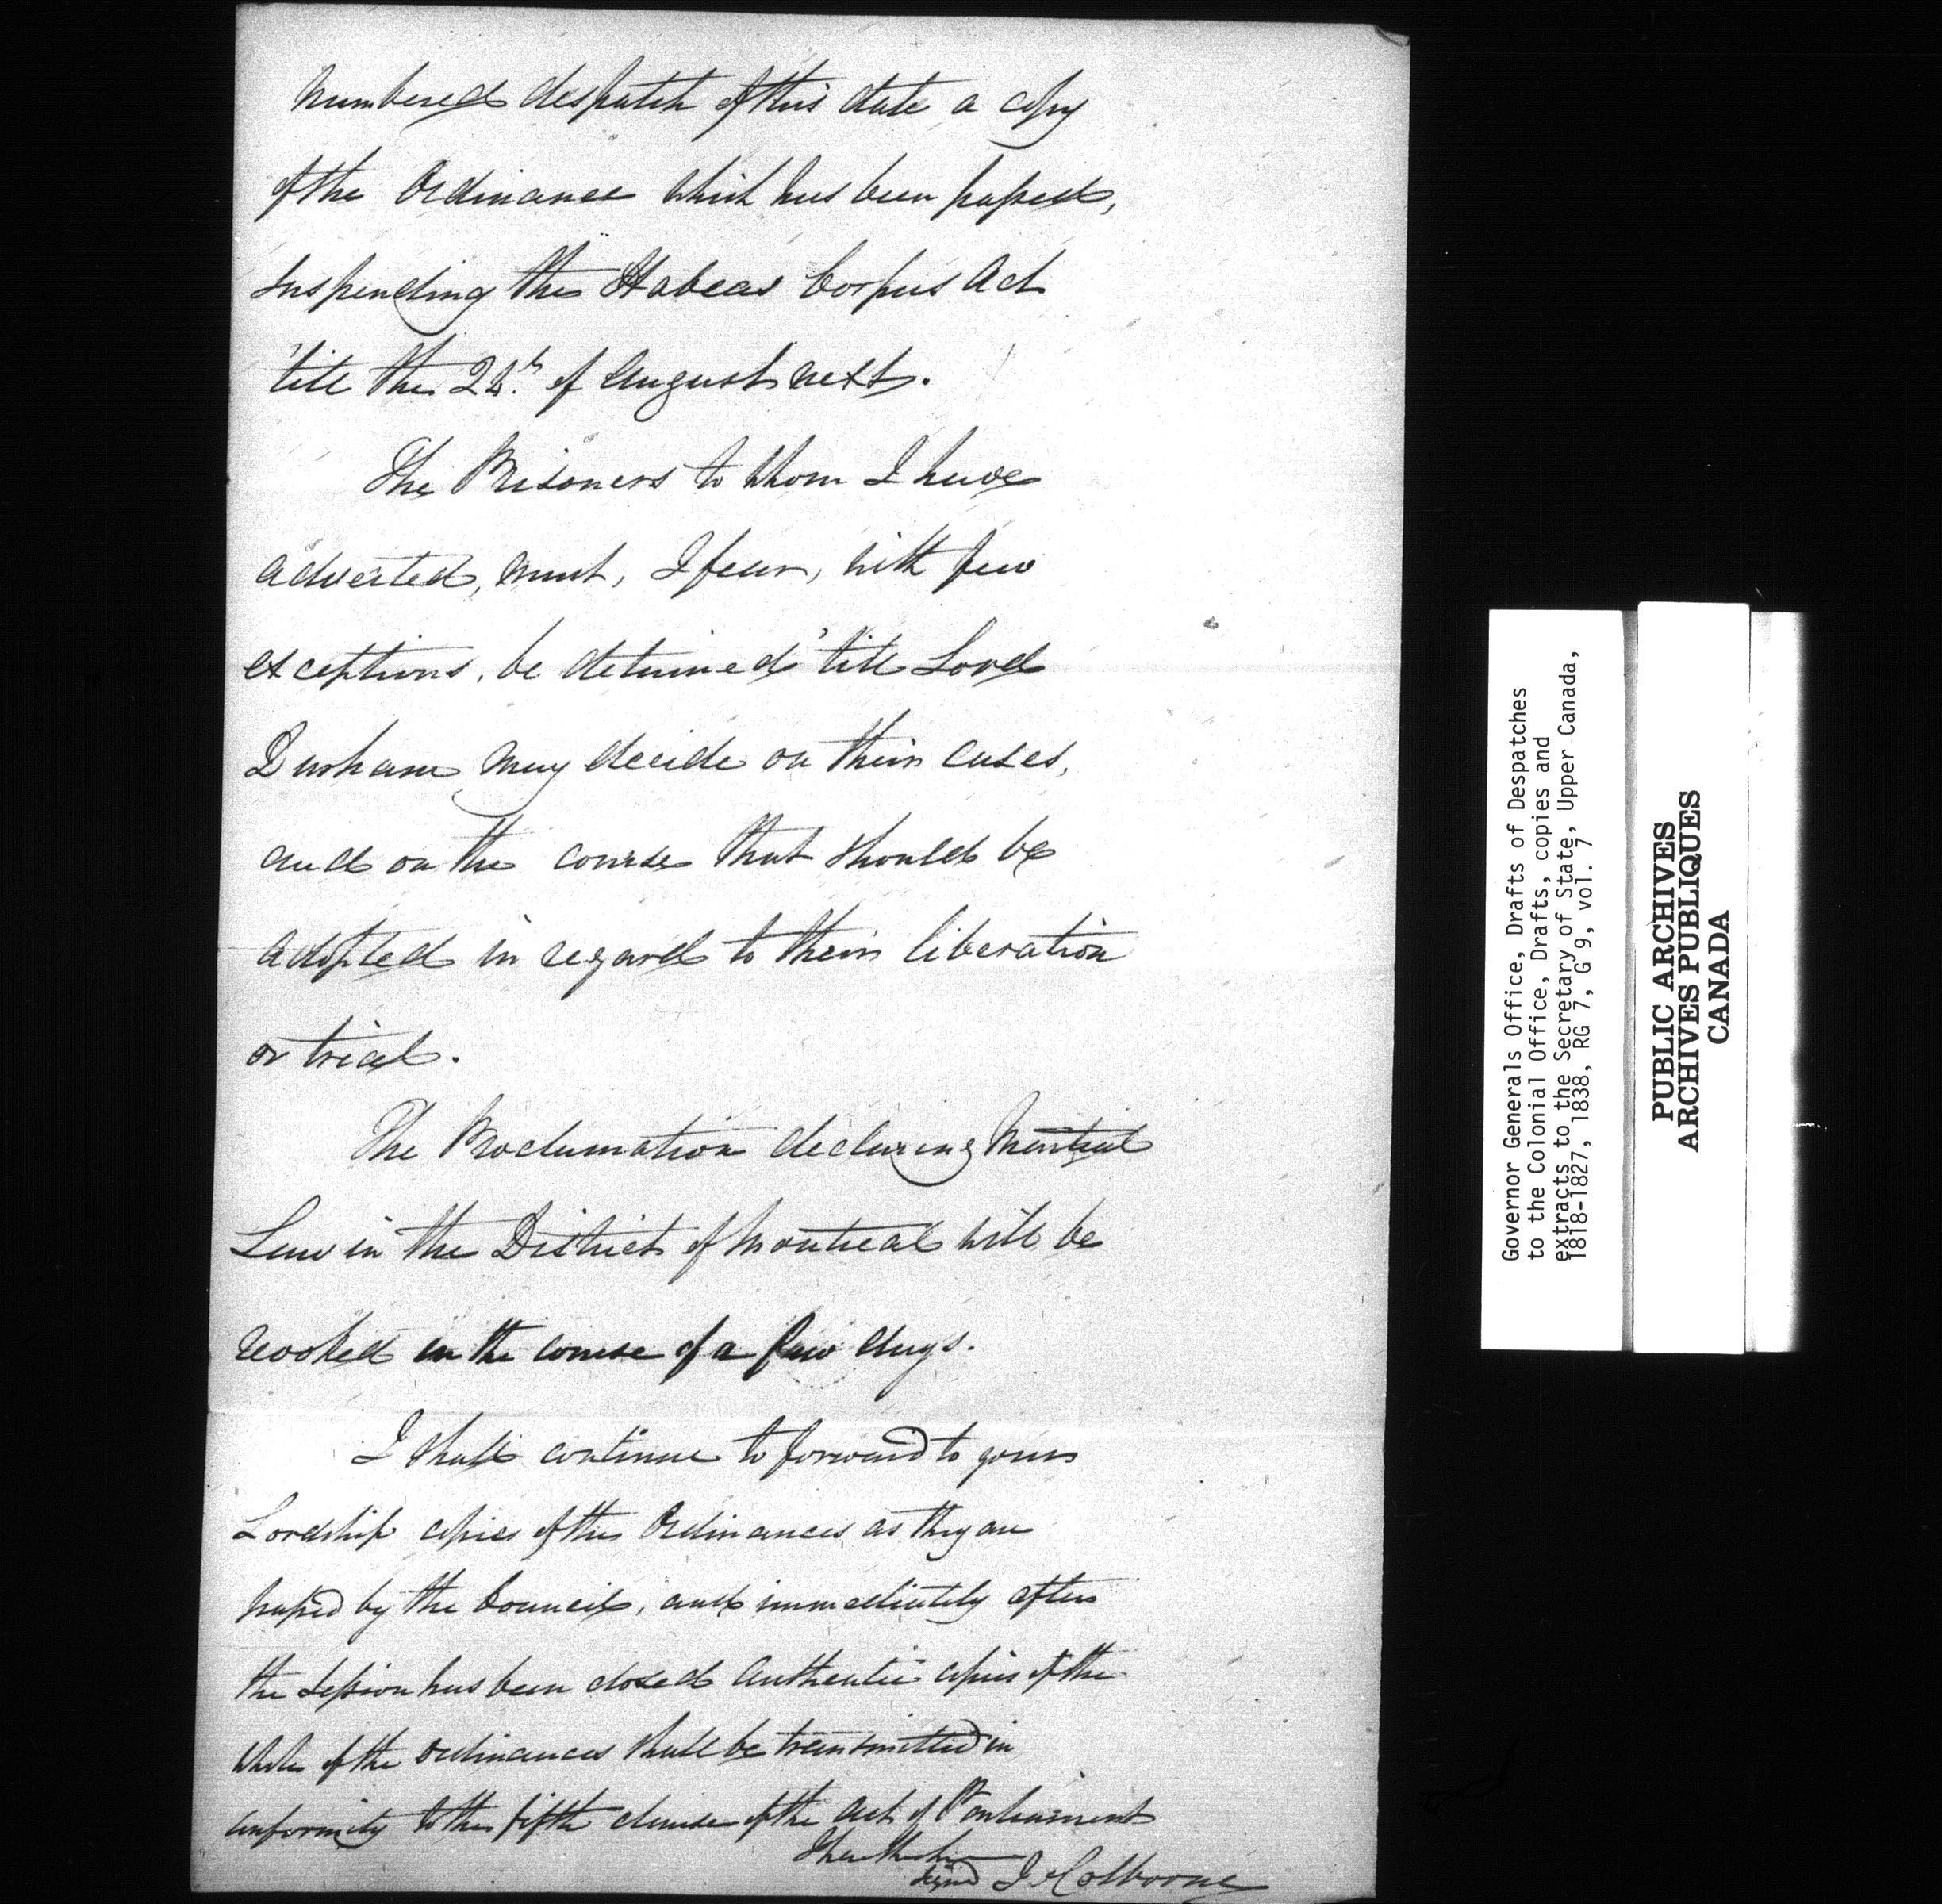 numbered despatch of this date a copy
of the Ordinance which has been passed,
suspending the Habeas Corpus Act
'till the 24th. of August next.
The Prisoners to whom I have
adverted, must, I fear, with few
exceptions, be detained 'till Lord
Durham may decide on their cases,
and on the course that should be
adopted in regard to their liberation
or trial.
The Proclamation declaring Martial
Law in the District of Montreal will be
revoked in the course of a few days.
I shall continue to forward to your
Lordship copies of the Ordinances as they are
passed by the Council, and immediately after
the Session has been closed authentic copies of the
whole of the ordinances shall be transmitted in
conformity to the fifth clause of the Act of Parliament
I have the honor
Signed J. Colborne
Governor Generals Office, Drafts of Despatches
to the Colonial Office, Drafts, copies and
extracts to the Secretary of State, Upper Canada,
1818-1827, 1838, RG 7, G 9, vol. 7
PUBLIC ARCHIVES
ARCHIVES PUBLIQUES
CANADA